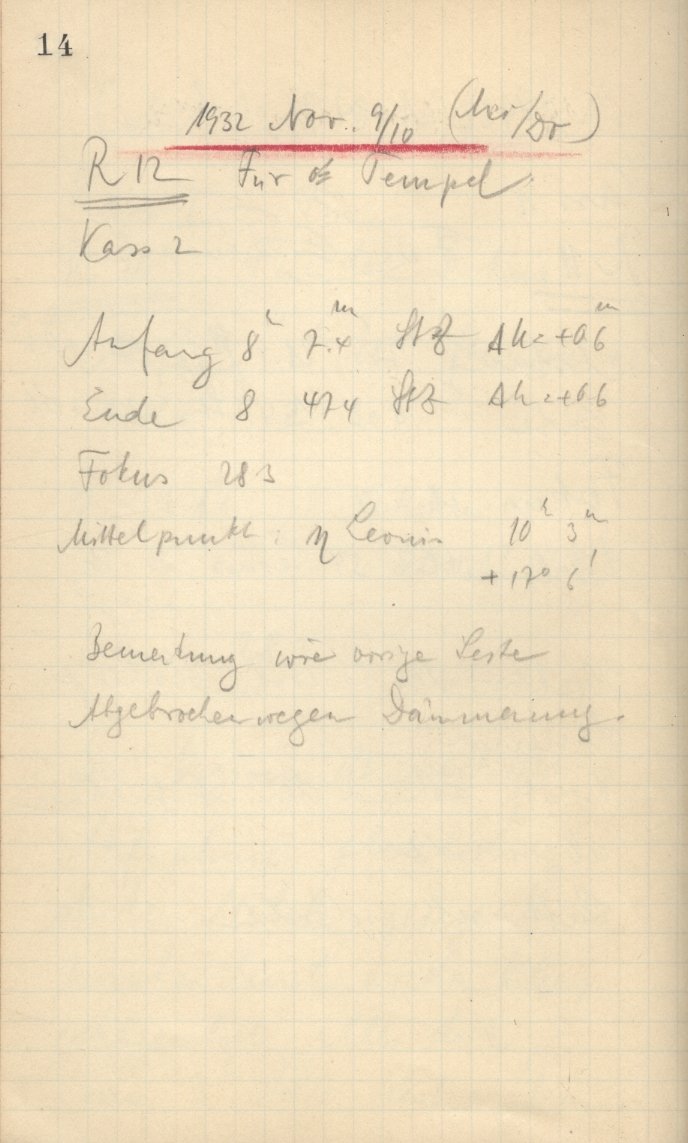 14
1932 Nov. 9/10 (Mei/Dr)
R 12 Für Tempel
Kass 2
Anfang 8h 7.4m Stz Δh = +0.6m
Ende 8 47.4 Stz Δh = +0.6
Fokus 283
Mittelpunkt: η Leonis 10h 3m
+17° 6'
Bemerkung wie vorige Seite
Abgebrochen wegen Dämmerung.